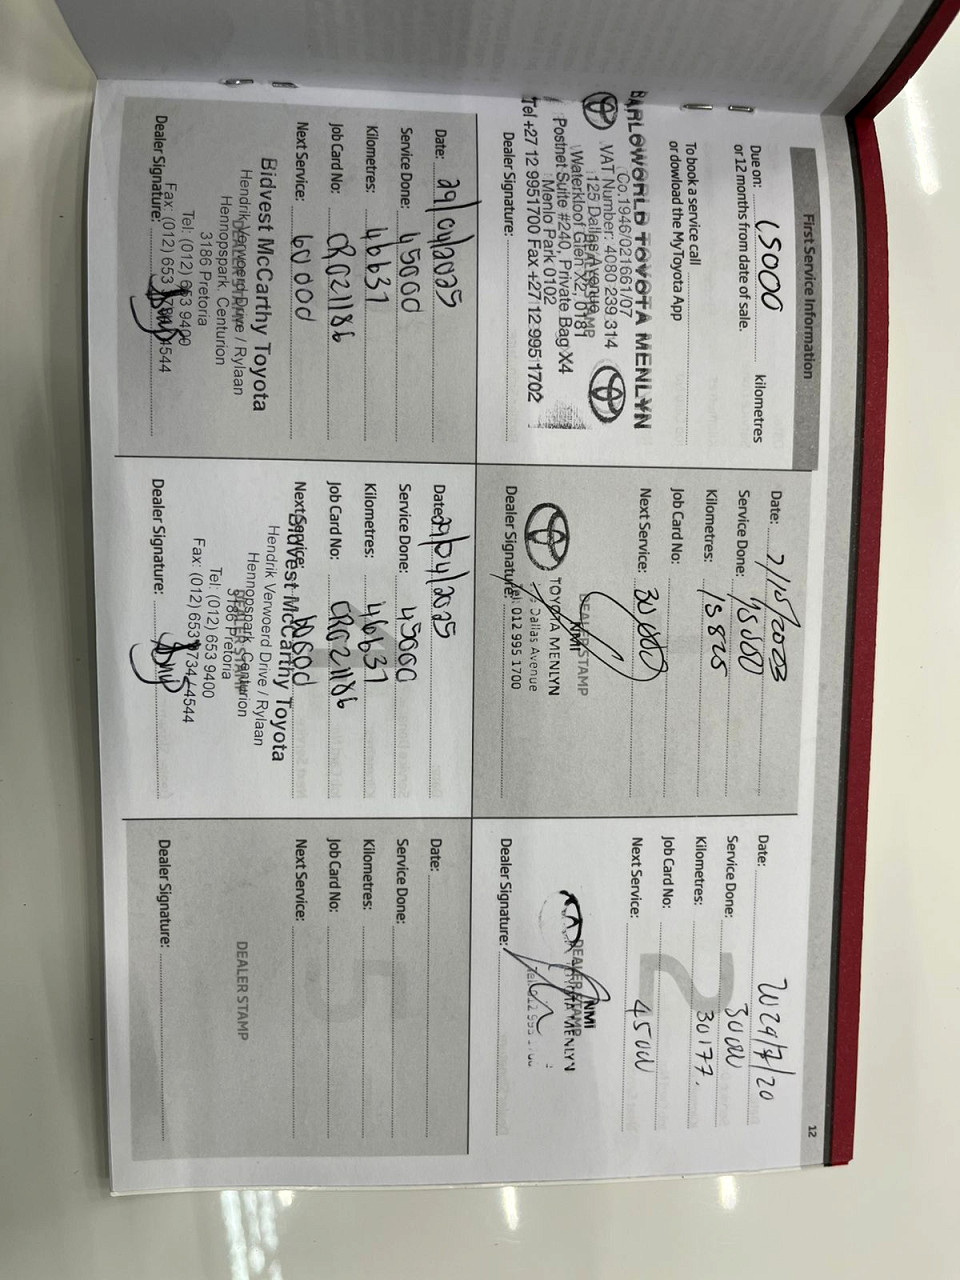 12
First Service Information
Due on: 15000 kilometres
or 12 months from date of sale.
To book a service call
or dowload the MyToyota App
BARLOWORLD TOYOTA MENLYN
Co.1946/021661/07
VAT Number: 4080 239 314
1125 Dallas Avenue
Waterkloof Glen X2, 0181
Postnet Suite #240, Private Bag X4
Menlo Park 0102
Tel +27 12 9951700 Fax +27 12 9951702
Dealer Signature:
Date: 7/10/2023
Service Done: 15000
Kilometres: 15825
Job Card No:
Next Service: 30000
DEALER STAMP
KIMI
TOYOTA MENLYN
Dallas Avenue
Tel: 012 995 1700
Dealer Signature:
Date: 2024/7/20
Service Done: 30000
Kilometres: 30177.
Job Card No:
2
Next Service: 45000
DEALER STAMP
MENLYN
Dealer Signature:
Date: 29/04/2025
Service Done: 45000
Kilometres: 46631
Job Card No: CR021186
Next Service: 60000
Bidvest McCarthy Toyota
Hendrik Verwoerd Drive / Rylaan
DEALER STAMP
Hennopspark, Centurion
3186 Pretoria
Tel: (012) 653 9400
Fax: (012) 653 4544
Dealer Signature:
Date: 29/04/2025
Service Done: 45000
Kilometres: 46631
Job Card No: CR021186
Next Service: 60000
Bidvest McCarthy Toyota
Hendrik Verwoerd Drive / Rylaan
Hennopspark, Centurion
DEALER STAMP
3186 Pretoria
Tel: (012) 653 9400
Fax: (012) 653 4544
Dealer Signature:
Date:
Service Done:
Kilometres:
Job Card No:
Next Service:
DEALER STAMP
Dealer Signature: